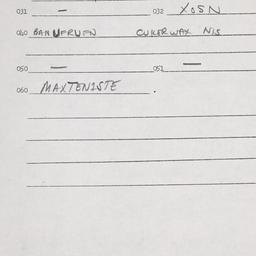 031 — 032 XOSN
040 BANUFRUFN CUKERWAX NIS
050 — 051 —
060 MAXTENISTE .